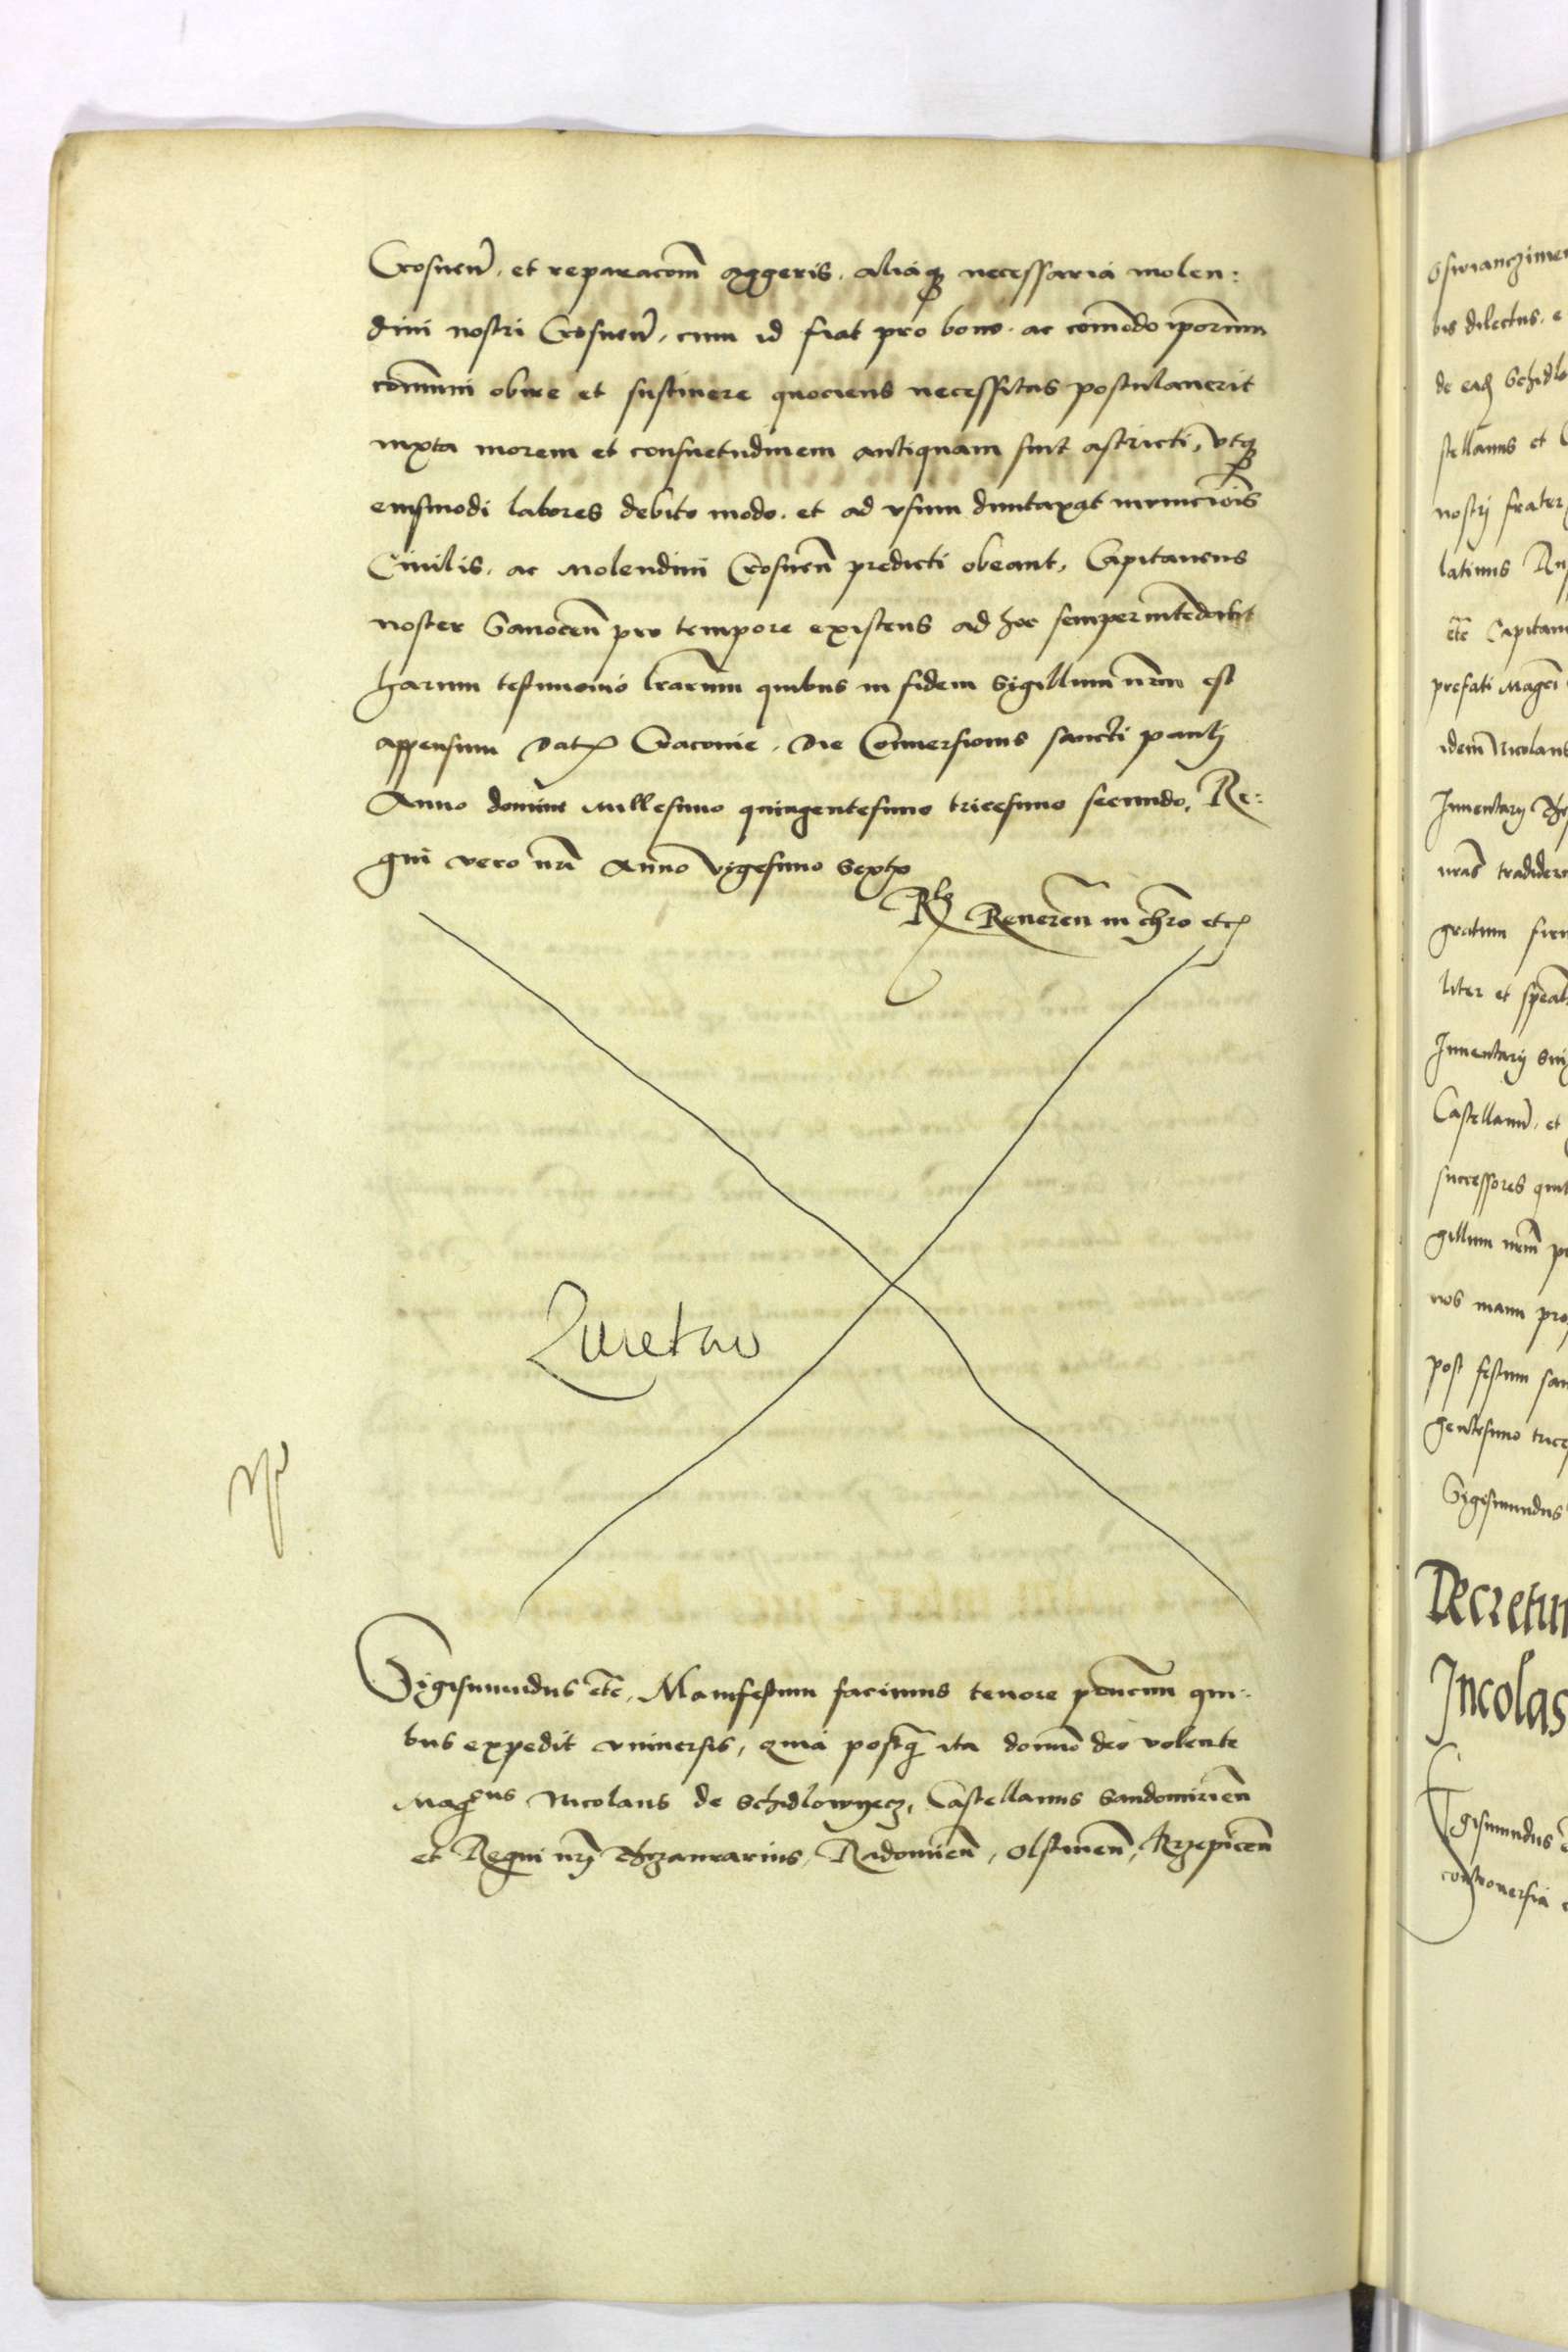 Crosnen̄, et reparacom̄ aggeris, aliaq; necessaria molen:
dini nostri Crosnen̄, cum id fiat pro bono ac com̄odo ipōrum
com̄uni obire et sustinere quociens necessitas postulaverit
iuxta morem et consuetudinem antiquam sint astricti, Vtq;
eiusmodi labores debito modo, et ad vsum duntaxat municiōis
Civilis, ac Molendini Crosnen̄ predicti obeant, Capitaneus
noster Sanocen̄ pro tempore existens ad hoc semper intendebit
harum testimonio lrārum quibus in fidem Sigillum nrm̄ est
appensum Dat Cracovie, Die Conversionis sancti pauli
Anno domini Millesimo quingentesimo tricesimo secundo, Re:
gni vero nr̄i Anno Vigesimo Sexto
Rlo Reveren̄ in chrō etc
Sigismundus etc̄, Manifestum facimus tenore pn̄cium qui:
bus expedit vniversis, quia postq̄ ita domino deo volente
Magcus Nicolaus de Schidlowyecz, Castellanus Sandomirien̄
et Regni nrī Thezaurarius, Radomien̄, Olstinen̄, Krzepicen̄
Oswianczimen
bis dilectus, e
de ead Schidlo
stellanus et
nostri frater
latinus
etc̄ Capitan
prefati Magci
idem Nicolaus
Inventary
nras̄ tradider
gratum
liter et specal
Inventary
Castellanū, et
successores
gillum nrm̄
nos manu pro
post festum san
gentesimo trice
Sigismundus
Decretum
Incolas
Sigismundus
controversia